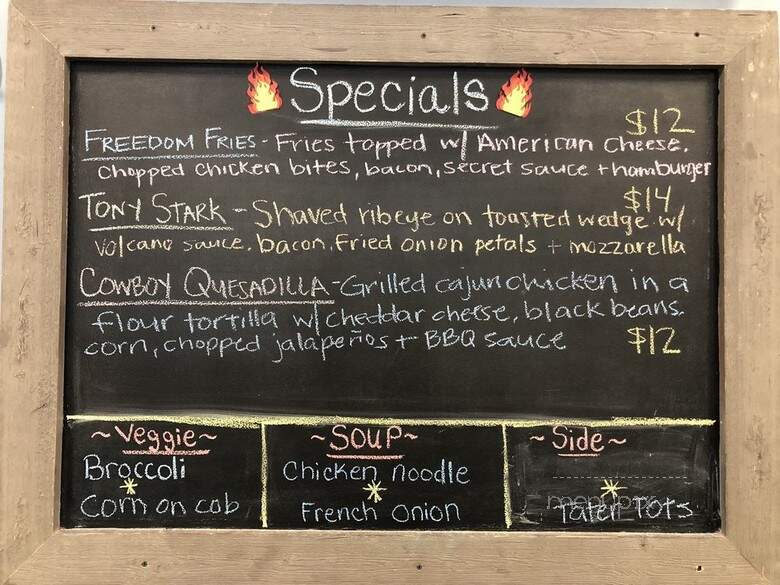 Specials
$12
FREEDOM FRIES - Fries topped w/ American Cheese,
Chopped chicken bites, bacon, secret sauce + hamburger
$14
TONY STARK - Shaved ribeye on toasted wedge w/
volcano sauce, bacon, Fried onion petals + mozzarella
COWBOY QUESADILLA - Grilled cajun chicken in a
flour tortilla w/ cheddar cheese, black beans,
corn, chopped jalapeños + BBQ sauce $12
~Veggie~
Broccoli
*
Corn on cob
~SOUP~
Chicken noodle
*
French Onion
~Side~
*
Tater Tots